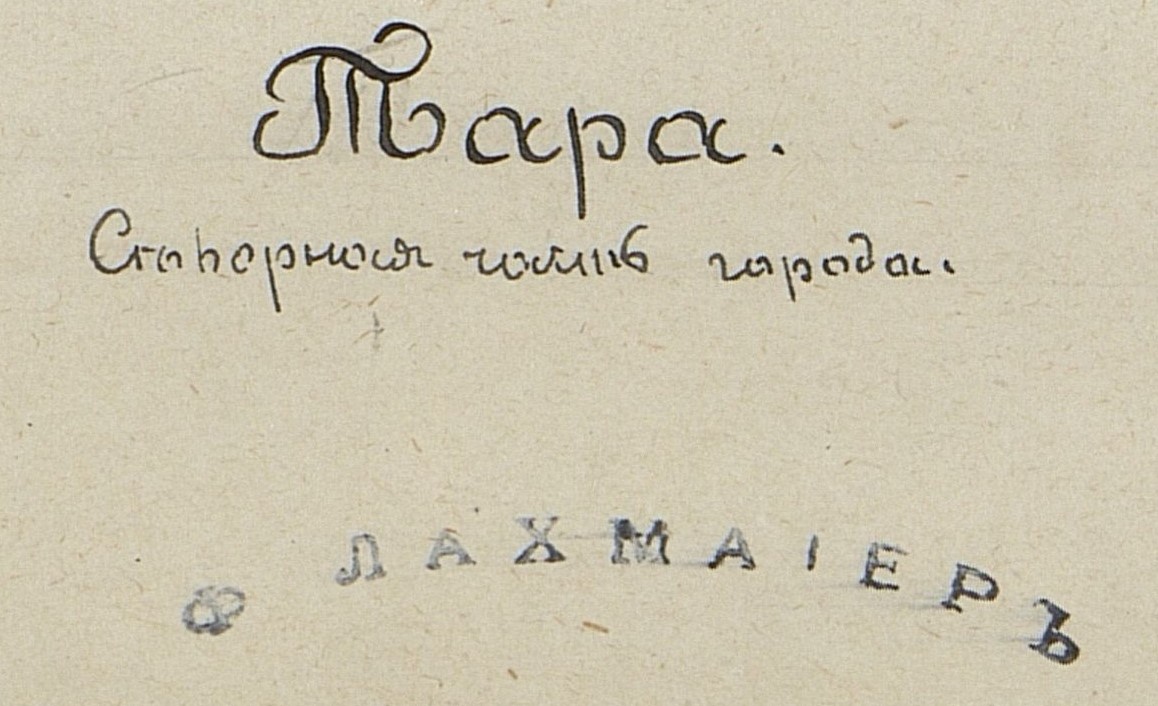 Тара.
Сѣверная часть города.
Ф ЛАХМАІЕРЪ